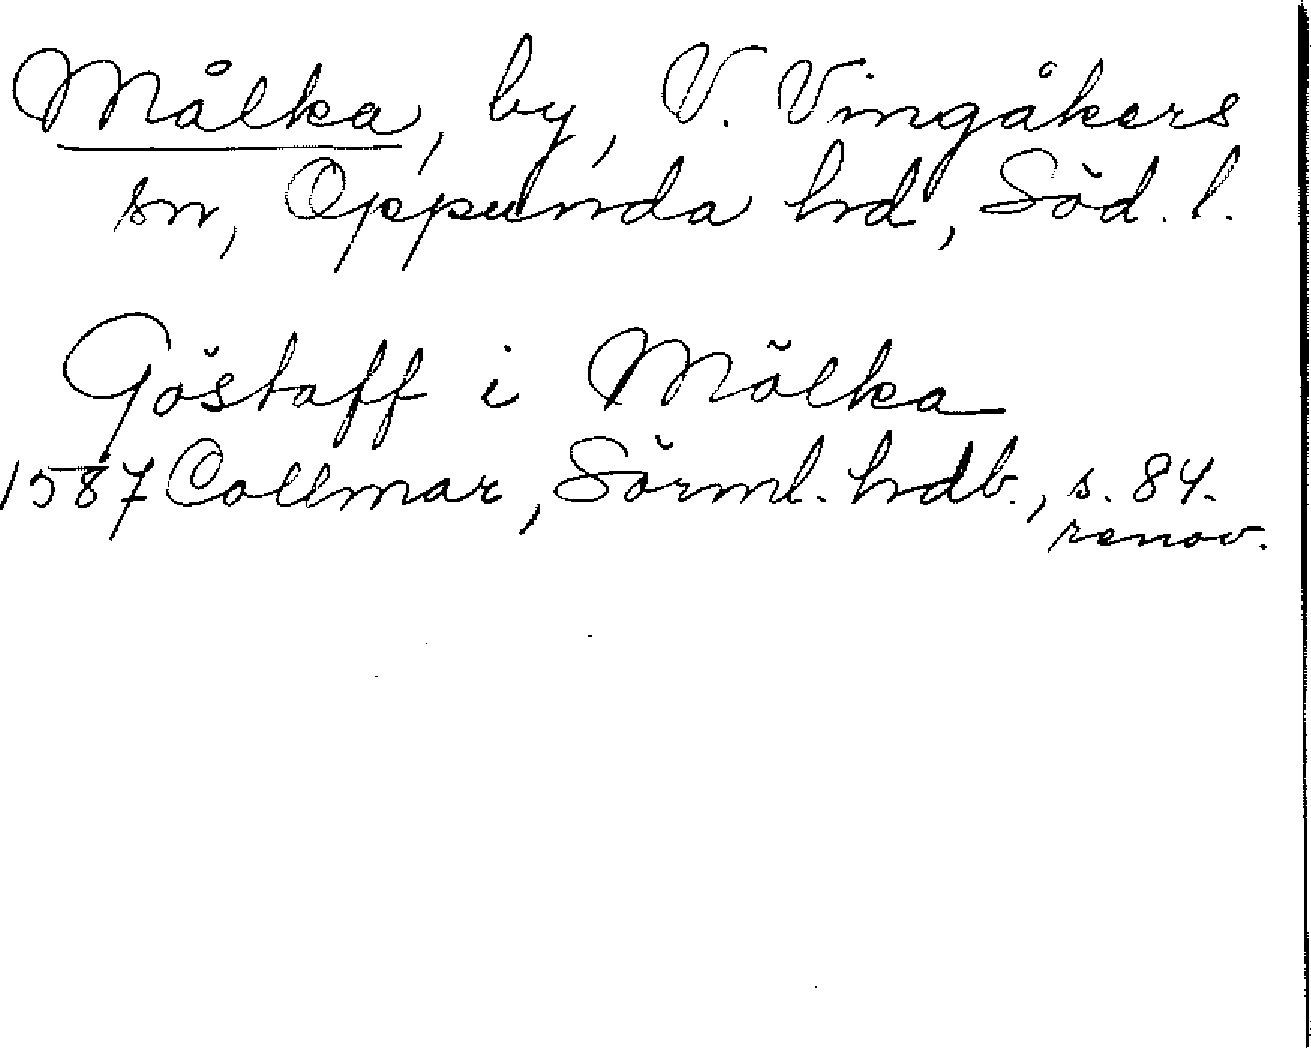 Målka, by, V. Vingåkers
sn, Oppunda hd, Söd. l.
Göstaff i Mölka
1587 Collmar, Sörml. hdb., s. 84.
renov.